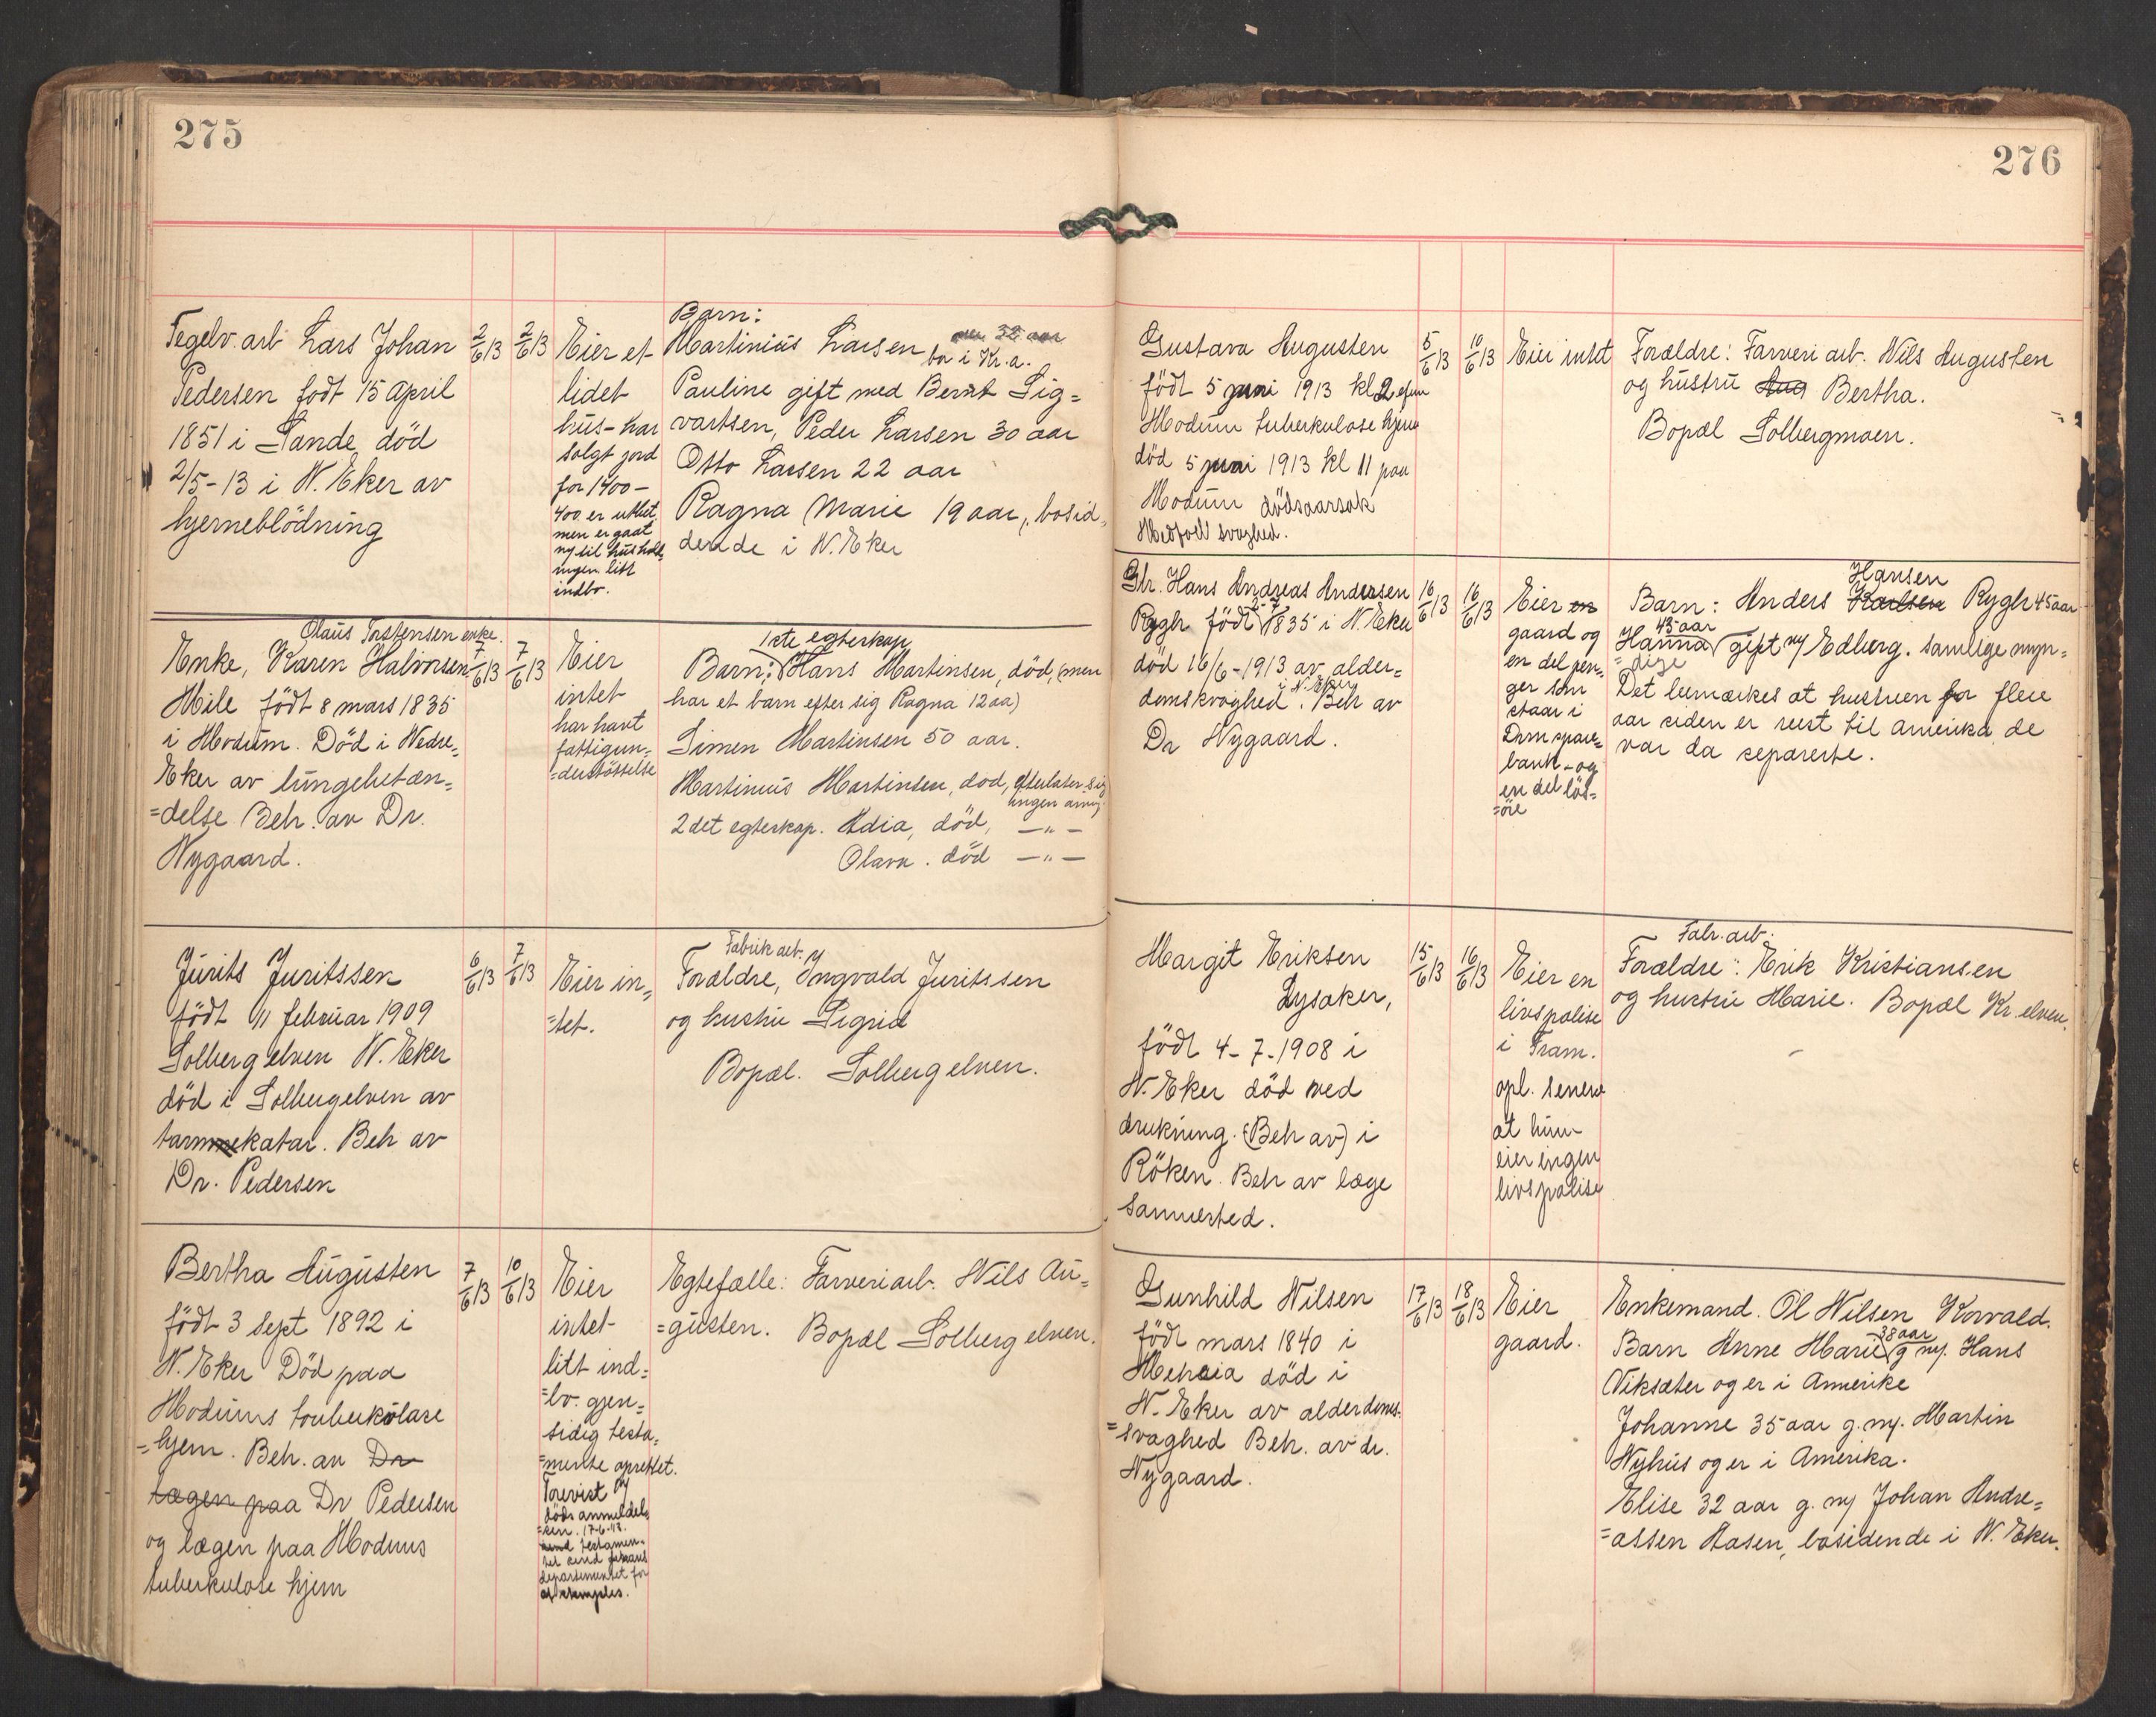 275
Tegelv. arb Lars Johan
Pedersen født 15 April
1851 i Sande, död
2/5-13 i N. Eker av
hjerneblödning
2/6 13
2/6 13
Eier et
lidet
hus - har
solgt jord
for 1400 -
400 er utbet
men er gaat
ny til hushold,
ningen litt
indbo.
Barn:
Martinius Larsen over 32 aar
bor i Kr.a.
Pauline gift med Bernt Sig=
vartsen, Peder Larsen 30 aar
Otto Larsen 22 aar
Ragna Marie 19 aar, bosid,
dende i N. Eker
Olaus Torstensen enke.
Enke, Karen Halvorsen
Mile födt 8 mars 1835
i Modum. Död i Nedre=
Eker av lungebetæn=
=delse Beh. av Dr.
Nygaard.
7/6 13
7/6 13
Eier
intet
har havt
fattigun=
=derstöttelse
1ste egteskap
Barn: Hans Martinsen, död, (men
har et barn efter sig Ragna 12 aa)
Simen Martinsen 50 aar.
Martinius Martinsen, död, efterlater sig
ingen arving
2det egteskap. Adia, död, — " —
Olava. död — " —
Jurits Juritssen
födt 11 februar 1909
Solbergelven N. Eker
död i Solbergelven av
tarmmekatar. Beh av
Dr. Pedersen
6/6 13
7/6 13
Eier in=
=tet.
Fabrik arb.
Forældre, Ingvald Juritssen
og hustru Sigrid
Bopæl. Solbergelven.
Bertha Augusten
födt 3 Sept 1892 i
N. Eker Död paa
Modums touberkulare
=hjem. Beh. av Dr
lægen paa Dr Pedersen
og lægen paa Modums
tuberkulose hjem
7/6 13
10/6 13
Eier
intet
litt ind=
=bo. gjen=
sidig testa=
=mente oprettet.
Forevist ny
döds anmeldel=
=sen. 17-6-13.
testamen=
tet send finans
departementet for
at stemples.
Egtefælle: Farveriarb. Nils Au=
=gusten. Bopæl Solbergelven.
276
Gustava Augusten
födt 5 juni 1913 kl 2 efm
Modum tuberkulose hjem
död 5 juni 1913 kl 11 paa
Modum dödsaarsak
Medfødt svaghed.
5/6 13
10/6 13
Eier intet
Forældre: Farveri arb. Nils Augusten
og hustru Aug Bertha.
Bopæl Solbergmoen.
Gbr. Hans Andreas Andersen
2-7
Rygh födt 1835 i N. Eker
död 16/6-1913 av alder=
i N. Eker
domsvaghed. Beh av
Dr Nygaard.
16/6 13
16/6 13
Eier en
gaard og
en del pen=
ger som
staar i
Drm spare=
bank - og
en del lös=
=öre
Hansen
Barn: Anders Karlsen Rygh 45 aar
43 aar
Hanna gift m/ Edberg. samlige myn=
=dige
Det bemærkes at hustruen for flere
aar siden er reist til Amerika de
var da separerte.
Margit Eriksen
Lysaker,
födt 4-7-1908 i
N. Eker död ved
drukning. (Beh av) i
Röken. Beh av læge
Sannersted.
15/6 13
16/6 13
Eier en
livspolise
i Fram.
opl. senere
at hun
eier ingen
livspolise
Fabr. arb.
Forældre: Erik Kristiansen
og hustru Marie. Bopæl Kr. elven.
Gunhild Nilsen
födt mars 1840 i
Meheia död i
N. Eker av alderdoms.
=svaghed Beh. av dr.
Nygaard.
17/6 13
18/6 13
Eier
gaard.
Enkemand. Ol Nilsen Korvald.
38 aar
Barn Anne Marie g m/. Hans
Viksæter og er i Amerike
Johanne 35 aar g. m/. Martin
Nyhus og er i Amerika.
Elise 32 aar g. m/ Johan Andre=
=assen Aasen, bosidende i N. Eker.